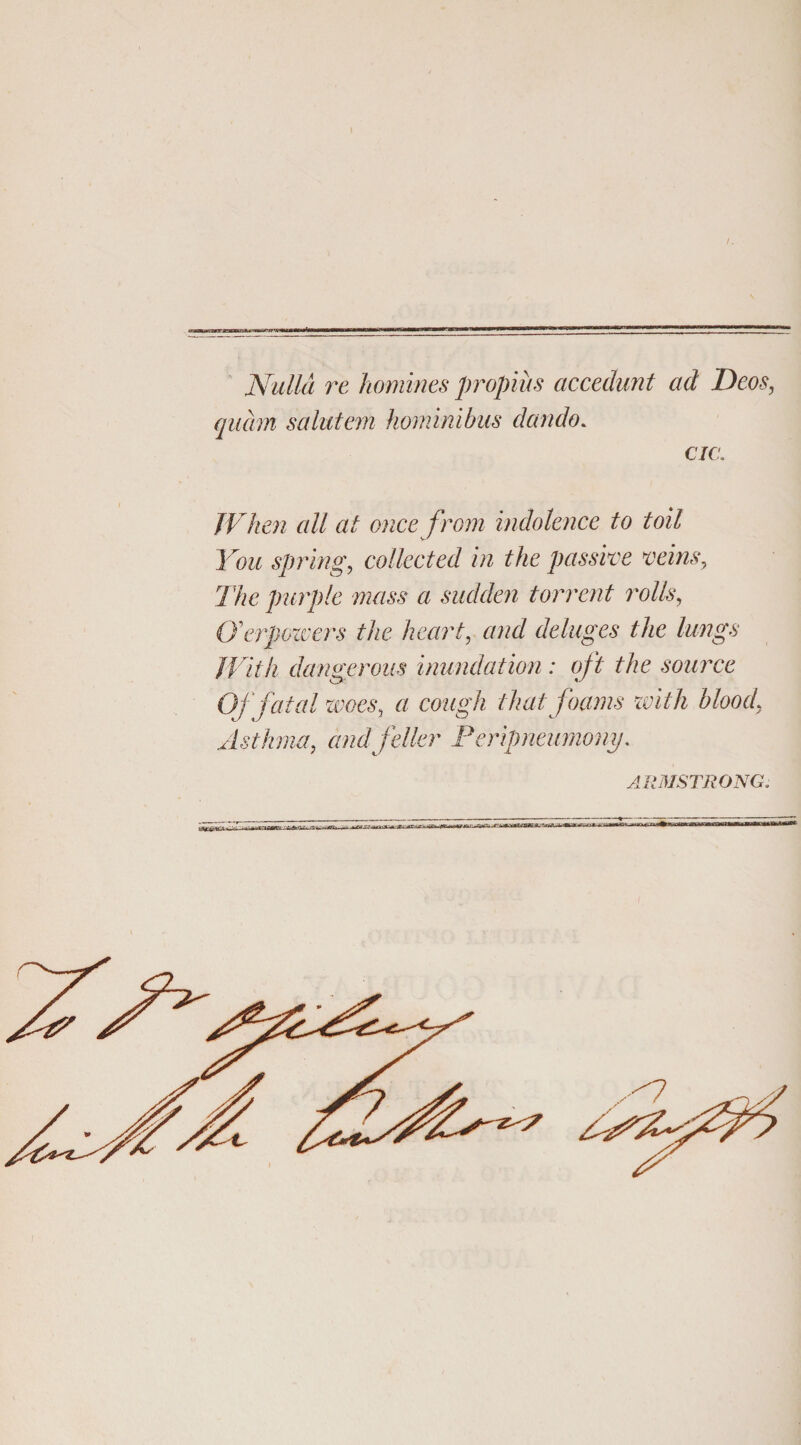 Nullâ re homines propiùs accedunt ad Deos,
quàm salutem hominibus dando.
CIC.
When all at once from indolence to toil
You spring, collected in the passive veins,
The purple mass a sudden torrent rolls,
O'erpowers the heart, and deluges the lungs
With dangerous inundation: oft the source
Of fatal woes, a cough that foams with blood,
Asthma, and feller Peripneumony.
ARMSTRONG.
To Dr
with the Author